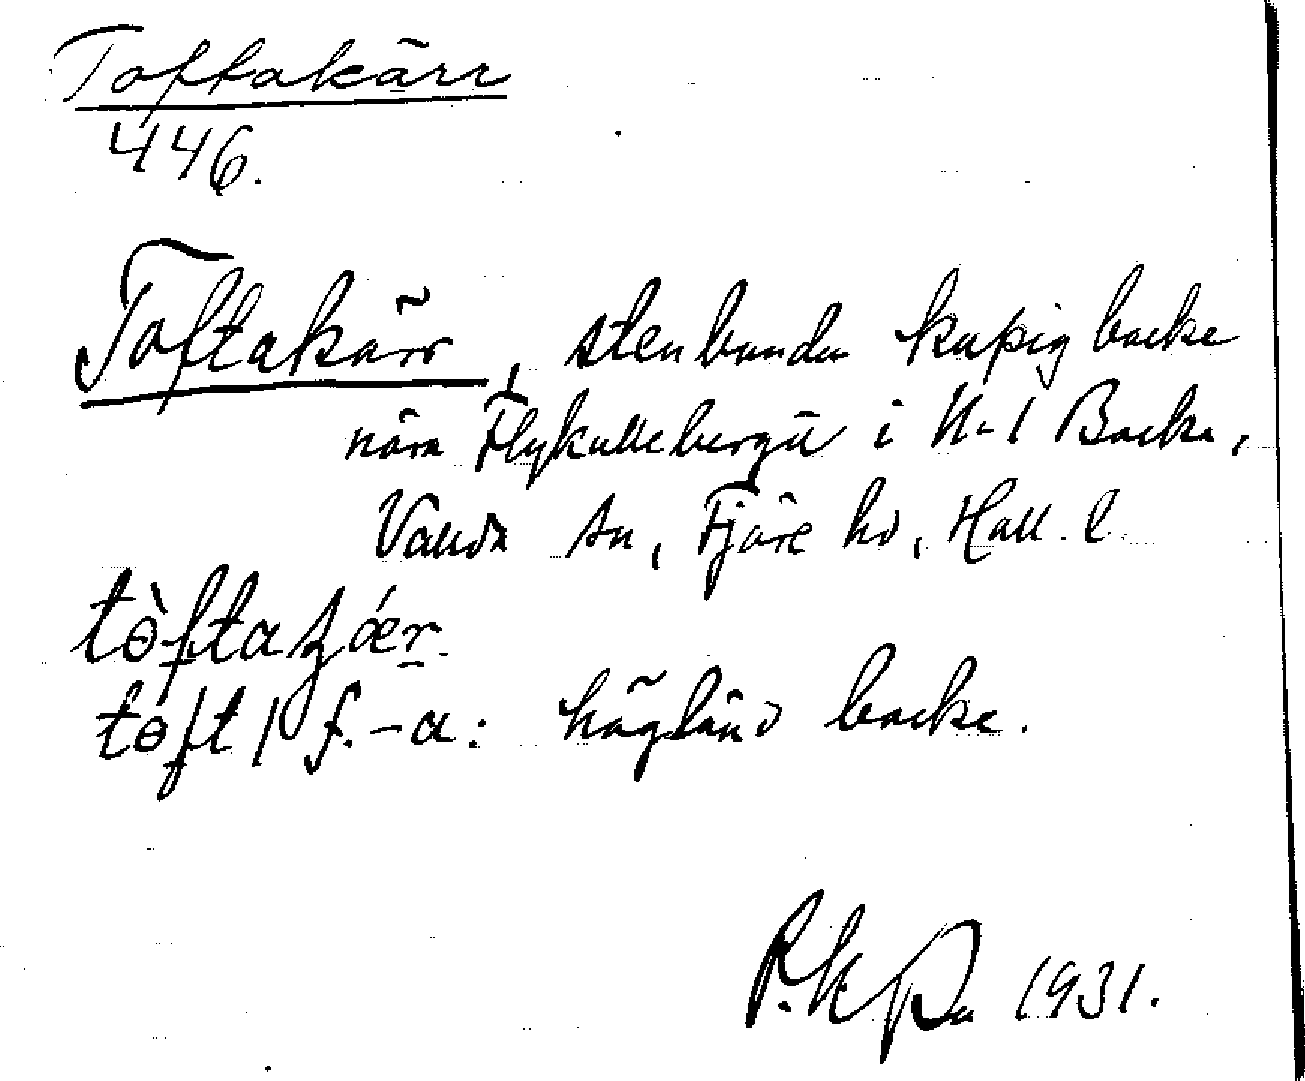 Toftakärr
446.
Toftakärr, stenbunden kupig backe
nära Flykullebergen i N-l Backa,
Vallda sn, Fjäre hd, Hall. l.
tòftaʒær
tɵft | f. -a: högländ backe.
1931.